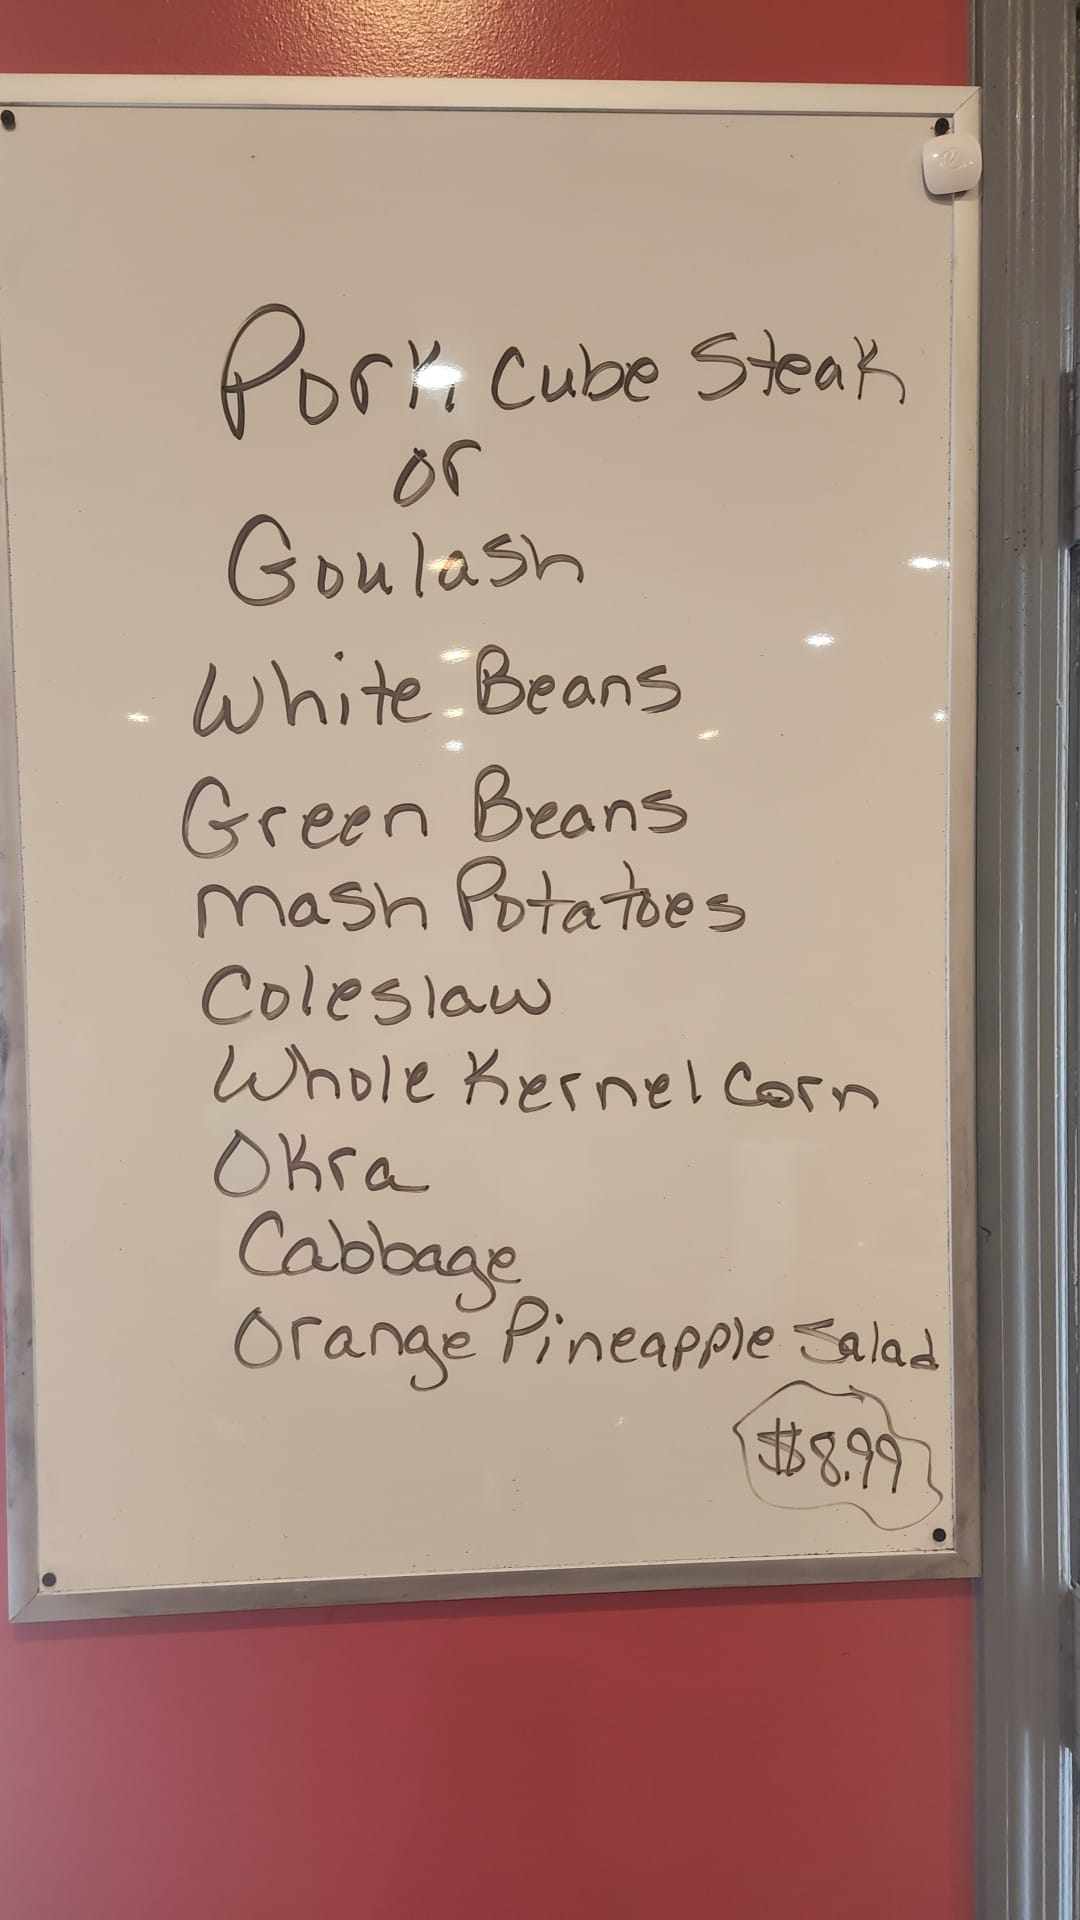 Pork Cube Steak
or
Goulash
White Beans
Green Beans
Mash Potatoes
Coleslaw
Whole Kernel Corn
Okra
Cabbage
Orange Pineapple Salad
$8.99